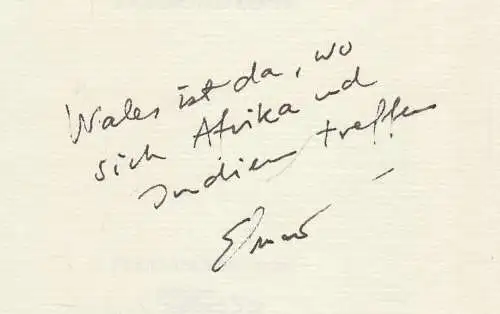 Wales ist da, wo
sich Afrika und
Indien treffen